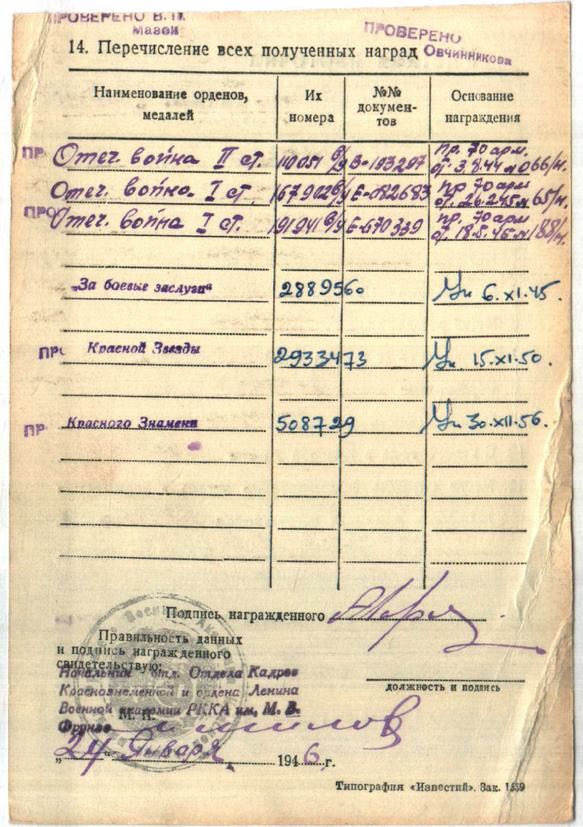 ПРОВЕРЕНО В. П.
Мазон
ПРОВЕРЕНО
Овчинникова
14. Перечисление всех полученных наград
Наименование орденов, медалей
Их номера
№№ документов
Основание награждения
ПР Отеч. война II ст. 110051 б/д В-193297 Пр. 70 арм. от 3.8.44 № 066/н.
Отеч. война I ст. 167902 б/у Е-082683 Пр 70 арм от 26.2.45 № 65/н.
ПРО Отеч. война I ст. 191941 б/у Е-670339 Пр. 70 арм от 18.5.45 № 188/н.
„За боевые заслуги“ 2889560 Ук 6.XI.45.
ПР Красной Звезды 2933473 Ук 15.XI.50.
ПР Красного Знамени 508729 Ук 30.XII.56.
Подпись награжденного
Правильность данных
и подпись награжденного
свидетельствую:
Начальник отл. Отдела Кадров
Краснознаменной и ордена Ленина
Военной академии РККА им. М. В.
Фрунзе
М. П.
должность и подпись
„24“ Января 1946 г.
Типография «Известий». Зак. 1559